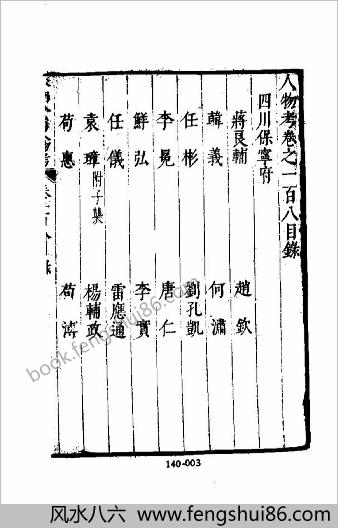 人物考卷之一百八目錄
四川保寧府
蔣良輔 趙欽
韓義 何瀟
任彬 劉孔凱
李晃 唐仁
鮮弘 李實
任儀 雷應通
袁璋附子襲 楊輔政
苟惠 苟済
140-003
book.fengshui86.com
风水八六 www.fengshui86.com